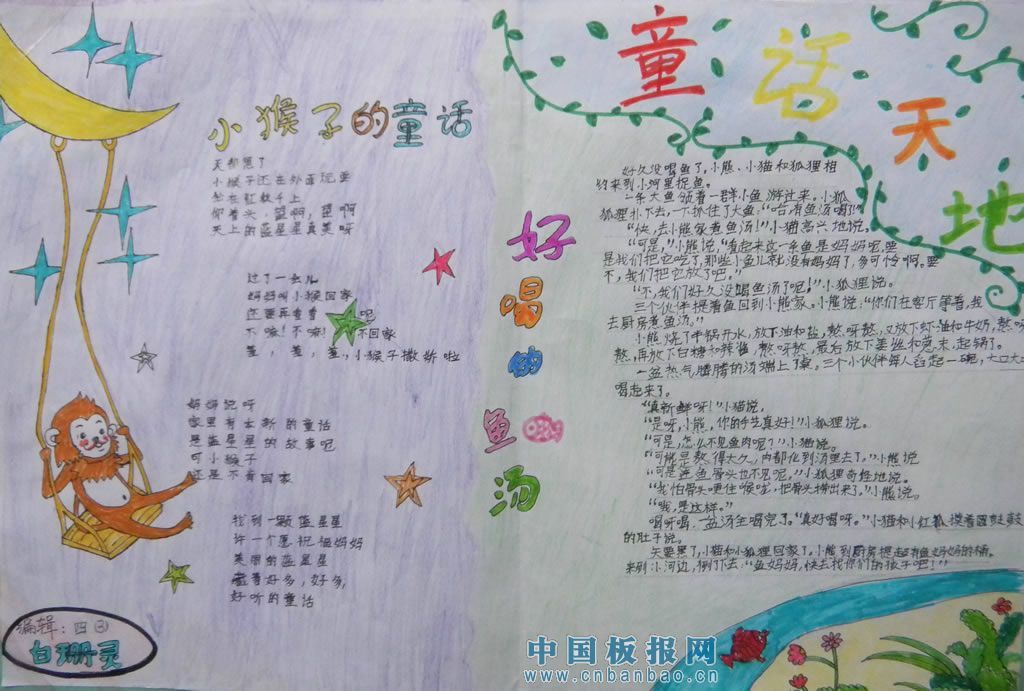 童话天地
小猴子的童话
天都黑了
小猴子还在外面玩耍
坐在秋千上
仰着头,望啊,望啊
天上的蓝星星真美呀
过了一会儿
妈妈叫小猴回家
还要再看看 呢
不嘛!不嘛! 不回家
羞,羞,羞,小猴子撒娇啦
妈妈说呀
家里有本新的童话
是蓝星星的故事吧
可小猴子
还是不肯回家
找到一颗蓝星星
许一个愿祝福妈妈
美丽的蓝星星
藏着好多,好多,
好听的童话
编辑:四③
白珊灵
好喝的鱼汤
好久没喝鱼了,小熊、小猫和狐狸相
约来到小河里捉鱼。
一条大鱼领着一群小鱼游过来,小狐
狐狸扑下去,一下抓住了大鱼:“哈,有鱼汤喝了!”
“快,去小熊家煮鱼汤!”小猫高兴地说。
“可是,”小熊说,“看起来这一条鱼是妈妈呢,要
是我们把它吃了,那些小鱼儿就没有妈妈了,多可怜啊。要
不,我们把它放了吧。”
“不,我们好久没喝鱼汤了呢!”小狐狸说。
三个伙伴提着鱼回到小熊家。小熊说:“你们在客厅等着,我
去厨房煮鱼汤。”
小熊烧了半锅开水,放下油和盐,熬呀熬,又放下虾油和牛奶,熬呀
熬,再放下白糖和辣椒,熬呀熬,最后放下姜丝和葱末,起锅了。
一盆热气腾腾的汤端上了桌。三个小伙伴每人舀起一碗,大口大口
喝起来了。
“真新鲜呀!”小猫说,
“是呀,小熊,你的手艺真好!”小狐狸说。
“可是,怎么不见鱼肉呢?”小猫说。
“可能是熬得太久,肉都化到汤里去了。”小熊说
“可是连鱼骨头也不见呢,”小狐狸奇怪地说。
“我怕骨头哽住喉咙,把骨头捞出来了。”小熊说。
“哦,是这样。”
喝呀喝,一盆汤全喝完了。“真好喝呀。”小猫和小红狐摸着圆鼓鼓
的肚子说。
天要黑了,小猫和小狐狸回家了。小熊到厨房提起有鱼妈妈的桶。
来到小河边,倒下去:“鱼妈妈,快去找你们的孩子吧!”
中国板报网
www.cnbanbao.cn